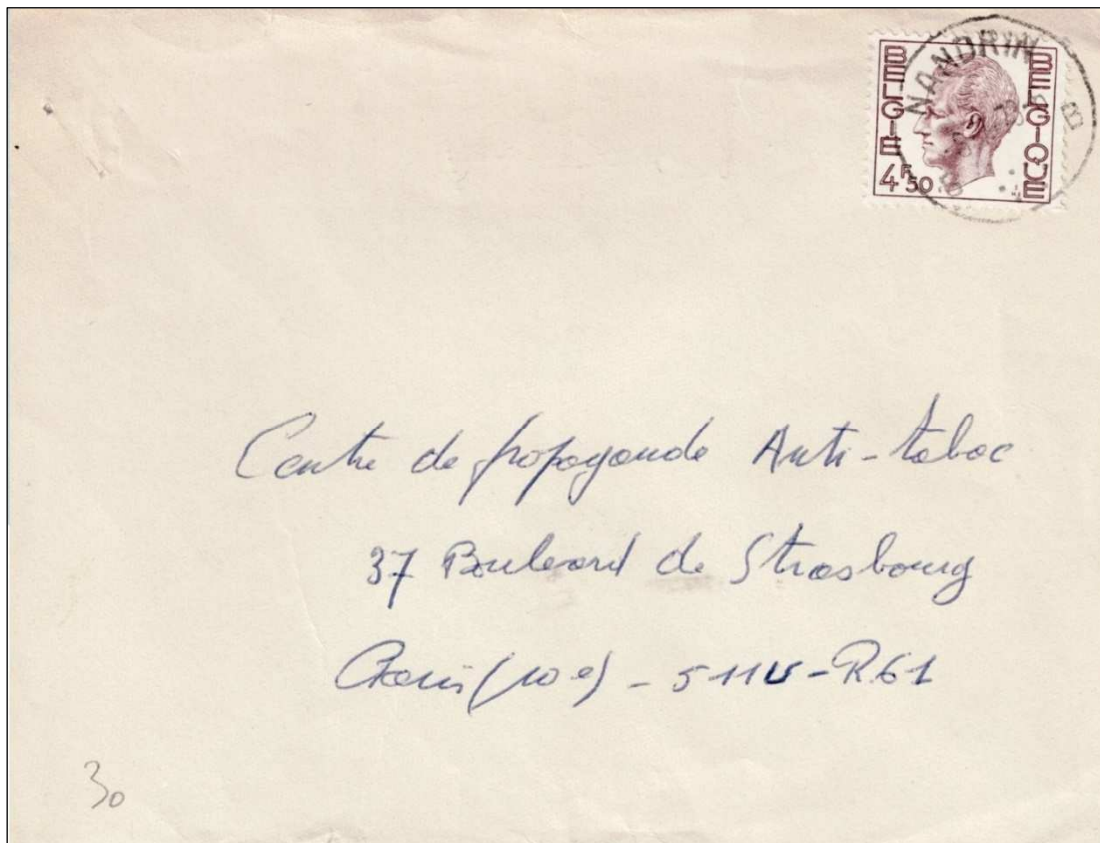 BELGIE BELGIQUE
4F50
NANDRIN
B
Centre de propagande Anti-tabac
37 Boulevard de Strasbourg
Paris (10e) - 5 11U - R61
30